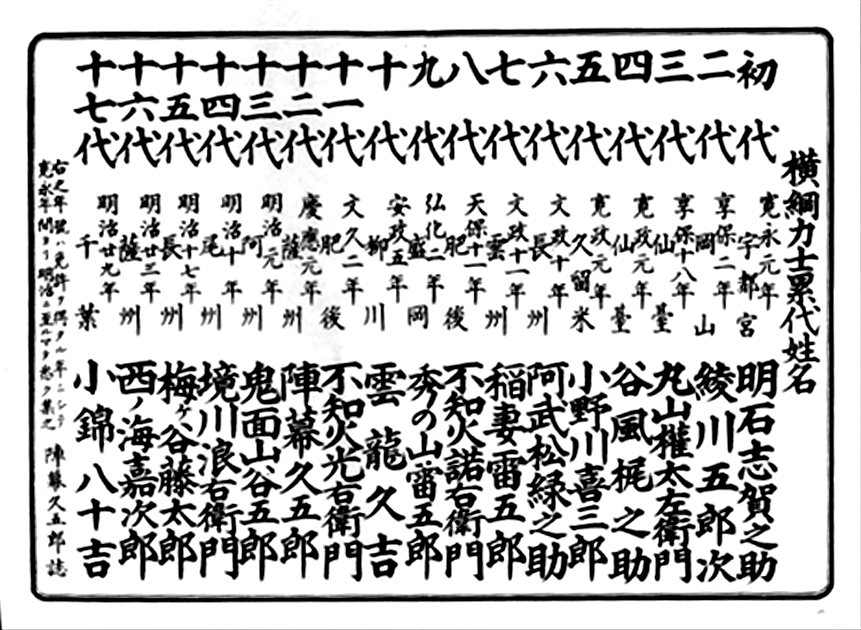 横綱力士累代姓名
初代 寛永元年 宇都宮 明石志賀之助
二代 享保二年 岡山 綾川五郎次
三代 享保十八年 仙臺 丸山權太左衛門
四代 寛政元年 仙臺 谷風梶之助
五代 寛政元年 久留米 小野川喜三郎
六代 文政十年 長州 阿武松緑之助
七代 文政十一年 雲州 稲妻雷五郎
八代 天保十一年 肥後 不知火諾右衛門
九代 弘化二年 盛岡 秀の山雷五郎
十代 安政五年 柳川 雲龍久吉
十一代 文久二年 肥後 不知火光右衛門
十二代 慶應元年 薩州 陣幕久五郎
十三代 明治元年 阿州 鬼面山谷五郎
十四代 明治十年 尾州 境川浪右衛門
十五代 明治十七年 長州 梅ヶ谷藤太郎
十六代 明治廿三年 薩州 西ノ海嘉次郎
十七代 明治廿九年 千葉 小錦八十吉
右之年號ハ免許ヲ得タル年ニシテ
寛永年間ヨリ明治ニ至ルマヲ悉ク集之 陣幕久五郎誌